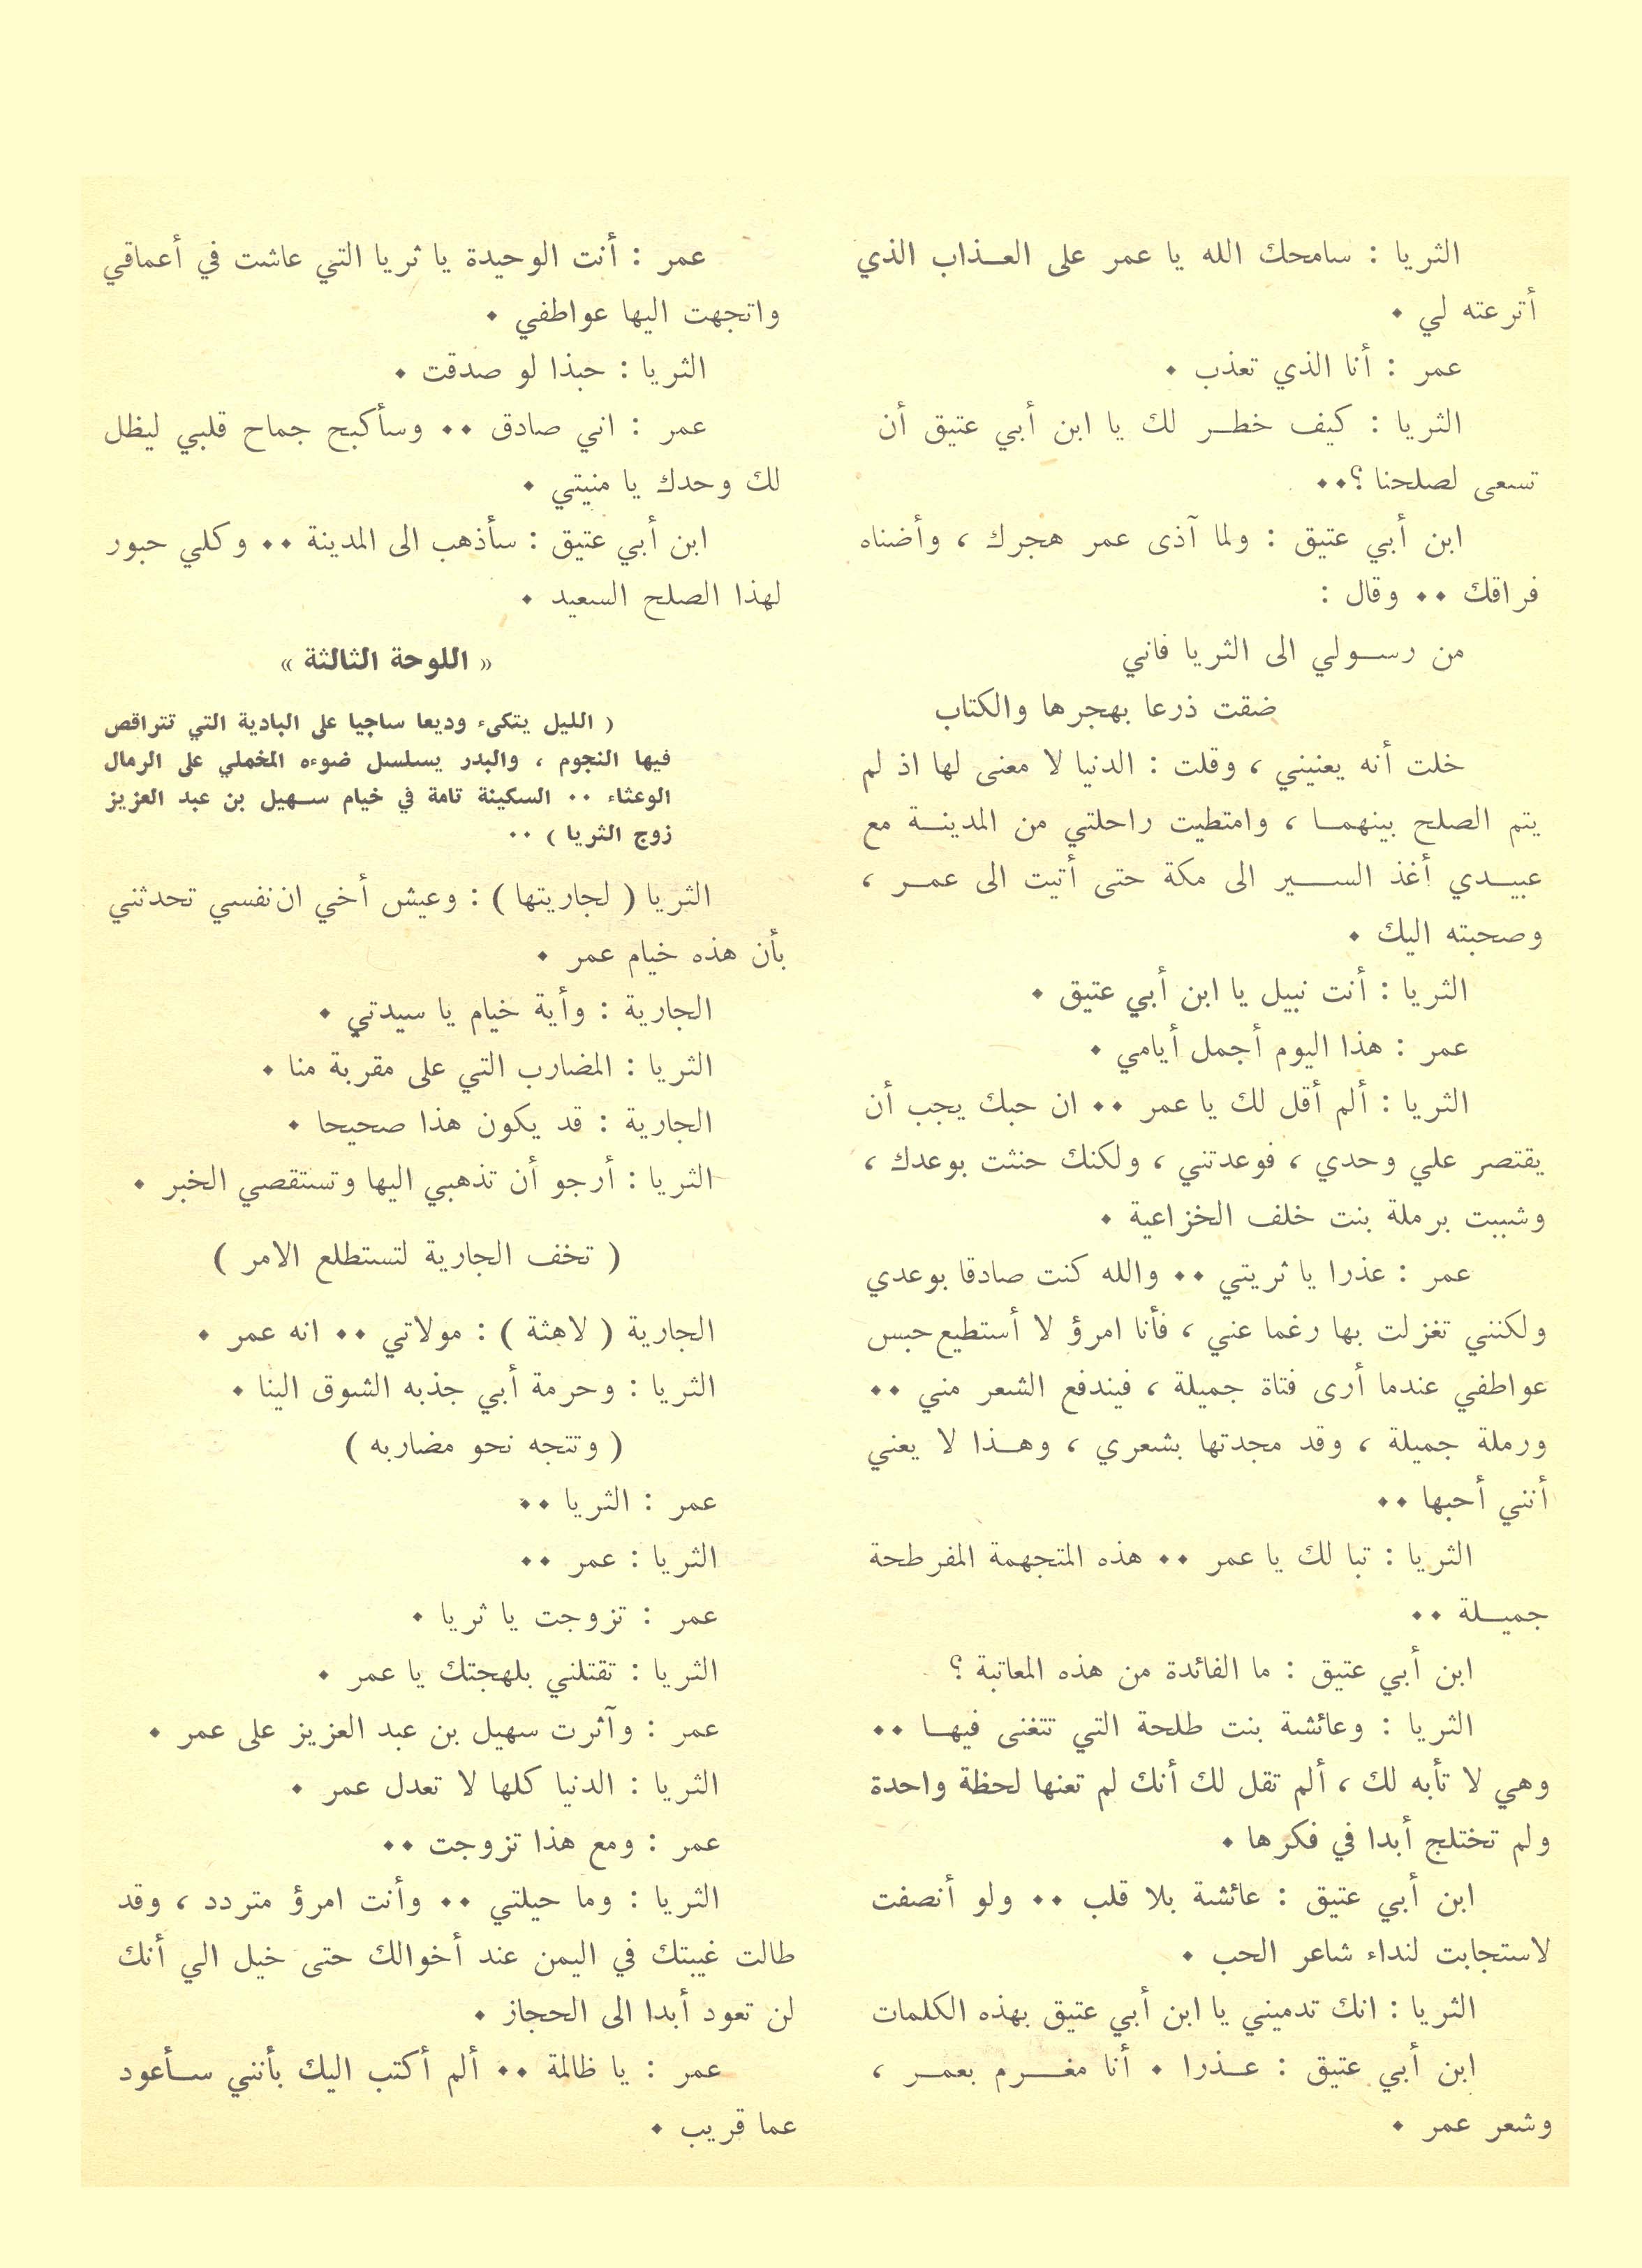 الثريا : سامحك الله يا عمر على العـذاب الذي
أترعته لي .
عمر : أنا الذي تعذب .
الثريا : كيف خطـر لك يا ابن أبي عتيق أن
تسعى لصلحنا ؟..
ابن أبي عتيق : ولما آذى عمر هجرك ، وأضناه
فراقك .. وقال :
من رسـولي الى الثريا فاني
ضقت ذرعا بهجرها والكتاب
خلت أنه يعنيني ، وقلت : الدنيا لا معنى لها اذ لم
يتم الصلح بينهمـا ، وامتطيت راحلتي من المدينـة مع
عبيـدي أغذ السـير الى مكة حتى أتيت الى عمـر ،
وصحبته اليك .
الثريا : أنت نبيل يا ابن أبي عتيق .
عمر : هذا اليوم أجمل أيامي .
الثريا : ألم أقل لك يا عمر .. ان حبك يجب أن
يقتصر علي وحدي ، فوعدتني ، ولكنك حنثت بوعدك ،
وشببت برملة بنت خلف الخزاعية .
عمر : عذرا يا ثريتي .. والله كنت صادقا بوعدي
ولكنني تغزلت بها رغما عني ، فأنا امرؤ لا أستطيع حبس
عواطفي عندما أرى فتاة جميلة ، فيندفع الشعر مني ..
ورملة جميلة ، وقد مجدتها بشعري ، وهـذا لا يعني
أنني أحبها ..
الثريا : تبا لك يا عمر .. هذه المتجهمة المفرطحة
جميـلة ..
ابن أبي عتيق : ما الفائدة من هذه المعاتبة ؟
الثريا : وعائشة بنت طلحة التي تتغنى فيهـا ..
وهي لا تأبه لك ، ألم تقل لك أنك لم تعنها لحظة واحدة
ولم تختلج أبدا في فكرها .
ابن أبي عتيق : عائشة بلا قلب .. ولو أنصفت
لاستجابت لنداء شاعر الحب .
الثريا : انك تدميني يا ابن أبي عتيق بهذه الكلمات
ابن أبي عتيق : عـذرا . أنا مغـرم بعمـر ،
وشعر عمر .
عمر : أنت الوحيدة يا ثريا التي عاشت في أعماقي
واتجهت اليها عواطفي .
الثريا : حبذا لو صدقت .
عمر : اني صادق .. وسأكبح جماح قلبي ليظل
لك وحدك يا منيتي .
ابن أبي عتيق : سأذهب الى المدينة .. وكلي حبور
لهذا الصلح السعيد .
« اللوحة الثالثة »
( الليل يتكىء وديعا ساجيا على البادية التي تتراقص
فيها النجوم ، والبدر يسلسل ضوءه المخملي على الرمال
الوعثاء .. السكينة تامة في خيام سـهيل بن عبد العزيز
زوج الثريا ) ..
الثريا ( لجاريتها ) : وعيش أخي ان نفسي تحدثني
بأن هذه خيام عمر .
الجارية : وأية خيام يا سيدتي .
الثريا : المضارب التي على مقربة منا .
الجارية : قد يكون هذا صحيحا .
الثريا : أرجو أن تذهبي اليها وتستقصي الخبر .
( تخف الجارية لتستطلع الامر )
الجارية ( لاهثة ) : مولاتي .. انه عمر .
الثريا : وحرمة أبي جذبه الشوق الينا .
( وتتجه نحو مضاربه )
عمر : الثريا ..
الثريا : عمر ..
عمر : تزوجت يا ثريا .
الثريا : تقتلني بلهجتك يا عمر .
عمر : وآثرت سهيل بن عبد العزيز على عمر .
الثريا : الدنيا كلها لا تعدل عمر .
عمر : ومع هذا تزوجت ..
الثريا : وما حيلتي .. وأنت امرؤ متردد ، وقد
طالت غيبتك في اليمن عند أخوالك حتى خيل الي أنك
لن تعود أبدا الى الحجاز .
عمر : يا ظالمة .. ألم أكتب اليك بأنني سـأعود
عما قريب .